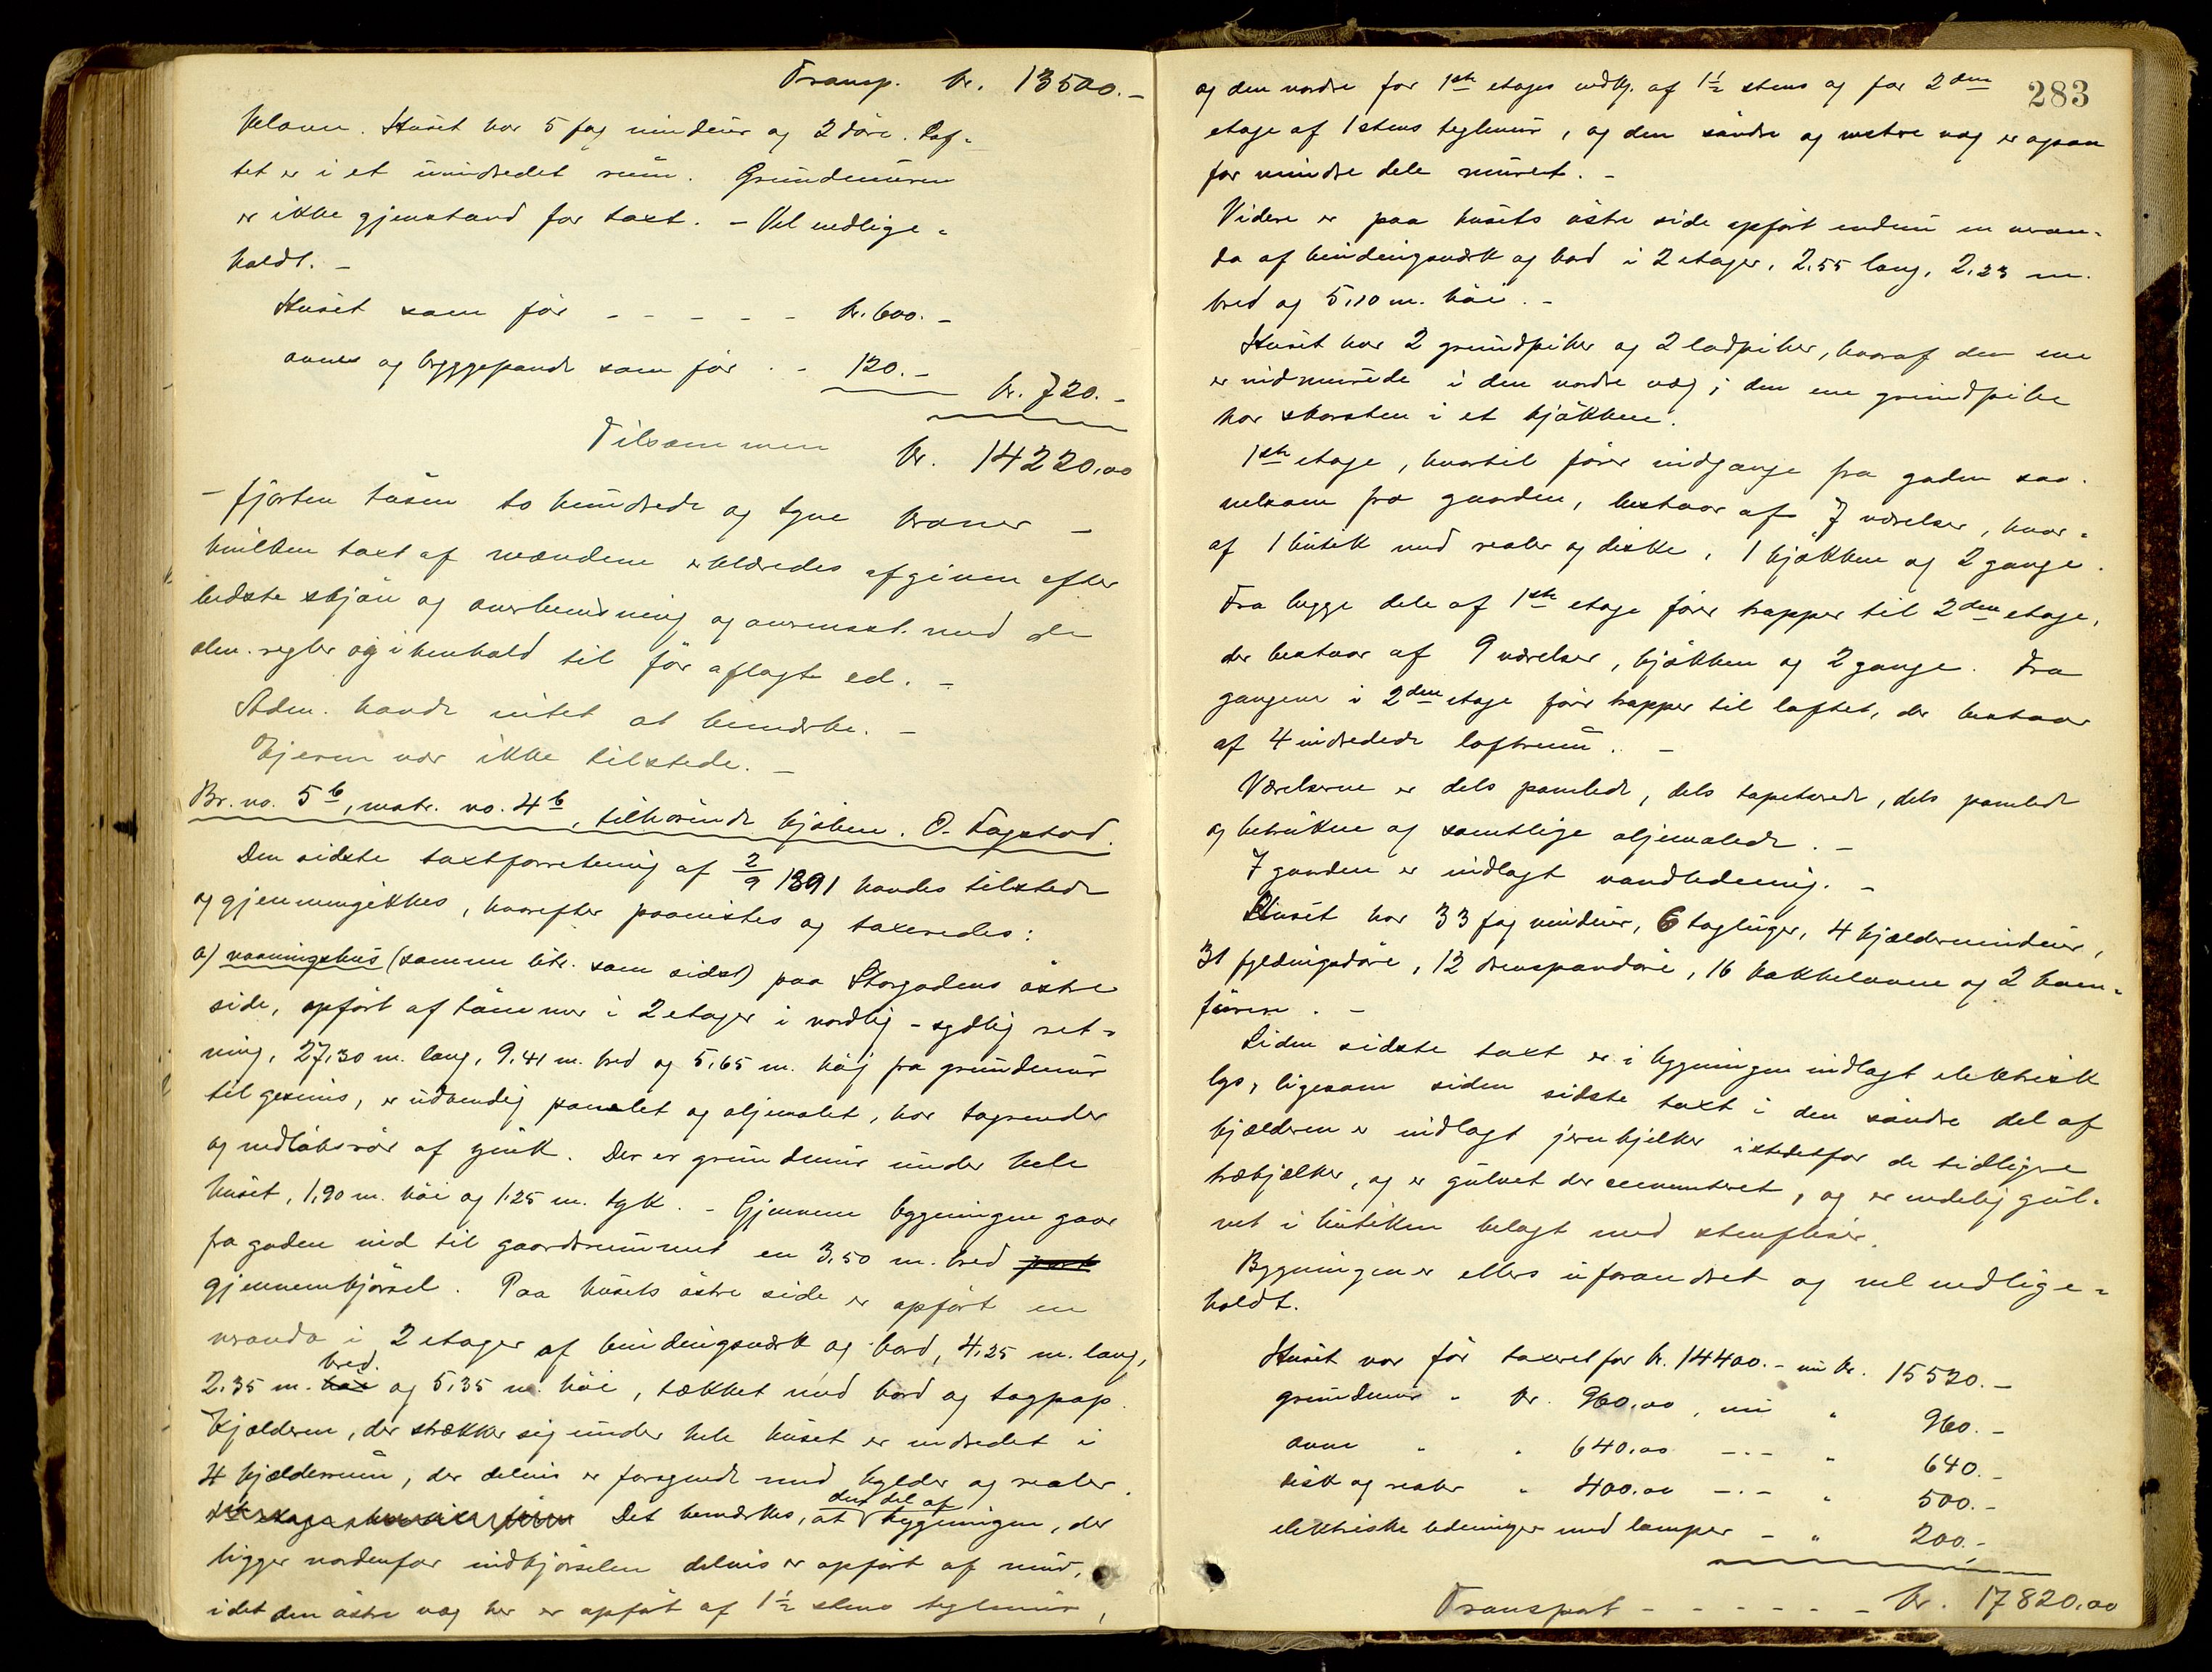 Transp. kr. 13500.-
kelovn. Huset har 5 fag vinduer og 2 döre. Lof-
tet er i et uindredet rum. Grundmuren
er ikke gjenstand for taxt. - Vel vedlige-
holdt. -
Huset som för - - - - - kr. 600. -
ovnes og bryggepande som för . - 120. -
kr. 720. -
Tilsammen kr. 14220,00
- fjorten tusen to hundrede og tyve kroner -
hvilken taxt af mændene erklæredes afgiven efter
bedste skjön og overbevisning og overensst. med de
alm. regler og i henhold til för aflagt ed. -
Adm. havde intet at bemærke. -
Ejeren var ikke tilstede. -
Br. no. 5b, matr. no. 4b, tilhörende kjöbm. O. Fagstad.
Den sidste taxtforretning af 2/9 1891 havdes tilstede
og gjennemgikkes, hvorefter paavistes og taxeredes:
a) vaaningshus (samme litr. som sidst) paa Storgadens östre
side, opfört af tömmer i 2 etager i nordlig - sydlig ret-
ning, 27,30 m. lang, 9,41 m. bred og 5,65 m. höj fra grundmur
til gesims, er udvendig panelet og oljemalet, har tagrender
og nedlöbsrör af zink. Der er grundmur under hele
huset, 1,90 m. höi og 1,25 m. tyk. - Gjennem bygningen gaar
fra gaden ind til gaardsrummet en 3,50 m. bred port
gjennemkjörsel. Paa husets östre side er opfört en
veranda i 2 etager af bindingsværk og bord, 4,25 m. lang,
bred.
2,35 m. höi og 5,35 m. höi, tækket med bord og tagpap.
Kjælderen, der strækker sig under hele huset er indredet i
4 kjælderrum, der delvis er forsynede med hylder og reoler.
den del af
1ste etage, Det bemærkes, at bygningen, der
ligger nordenfor indkjörselen delvis er opfört af mur,
idet den östre væg her er opfört af 1½ stens teglmur,
283
og den nordre for 1ste etages vedk. af 1½ stens og for 2den
etage af 1 stens teglmur, og den söndre og vestre væg er ogsaa
for mindre dele muret. -
Videre er paa husets östre side opfört endnu en veran-
da af bindingsværk og bord i 2 etager, 2,55 lang, 2,23 m.
bred og 5,10 m. höi. -
Huset har 2 grundpiber og 2 ladpiber, hvoraf den ene
er indmurede i den nordre væg; den ene grundpibe
har skorsten i et kjökken.
1ste etage, hvortil förer indgange fra gaden saa-
velsom fra gaarden, bestaar af 7 værelser, hvor-
af 1 butik med reoler og diske, 1 kjökken og 2 gange.
Fra begge dele af 1ste etage förer trapper til 2den etage,
der bestaar af 9 værelser, kjökken og 2 gange. Fra
gangene i 2den etage förer trapper til loftet, der bestaar
af 4 indredede loftrum. -
Værelserne er dels panelede, dels tapetserede, dels panelede
og betrukne og samtlige oljemalede. -
I gaarden er indlagt vandledning. -
Huset har 33 fag vinduer, 6 tagluger, 4 kjældervinduer,
31 fyldingsdöre, 12 döre, 16 kakkelovne og 2 kom-
furer. -
Siden sidste taxt er i bygningen indlagt elektrisk
lys, ligesom siden sidste taxt i den söndre del af
kjælderen er indlagt jernbjelker istedetfor de tidligere
træbjælker, og er gulvet der cementeret, og er endelig gul-
vet i butiken belagt med stenfliser.
Bygningen er ellers uforandret og vel vedlige-
holdt.
Huset var för taxeret for kr. 14400.- nu kr. 15520. -
grundmur " kr. 960,00, nu " 960. -
ovne " " 640,00 -.- " 640. -
disk og reoler " 400,00 -.- " 500. -
elektriske ledninger med lamper - " 200. -
Transport - - - - - - kr. 17820,00